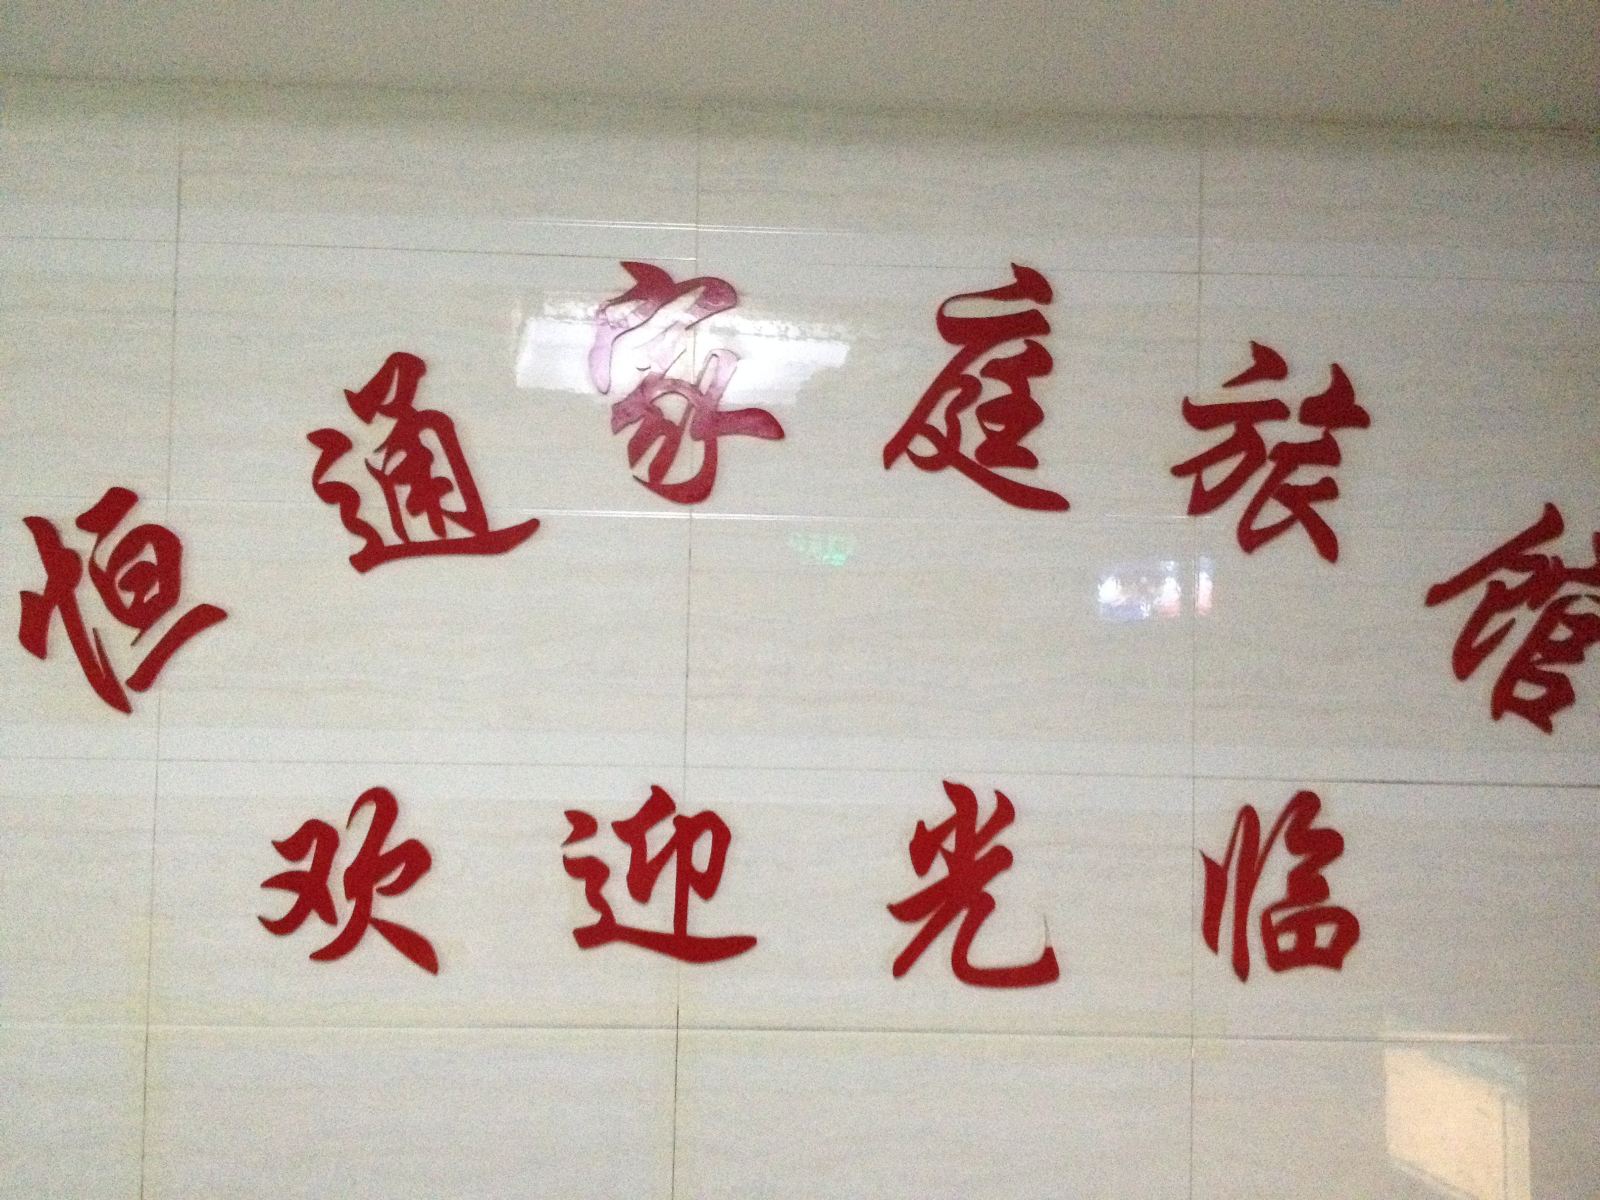 恒通家庭旅馆
欢迎光临